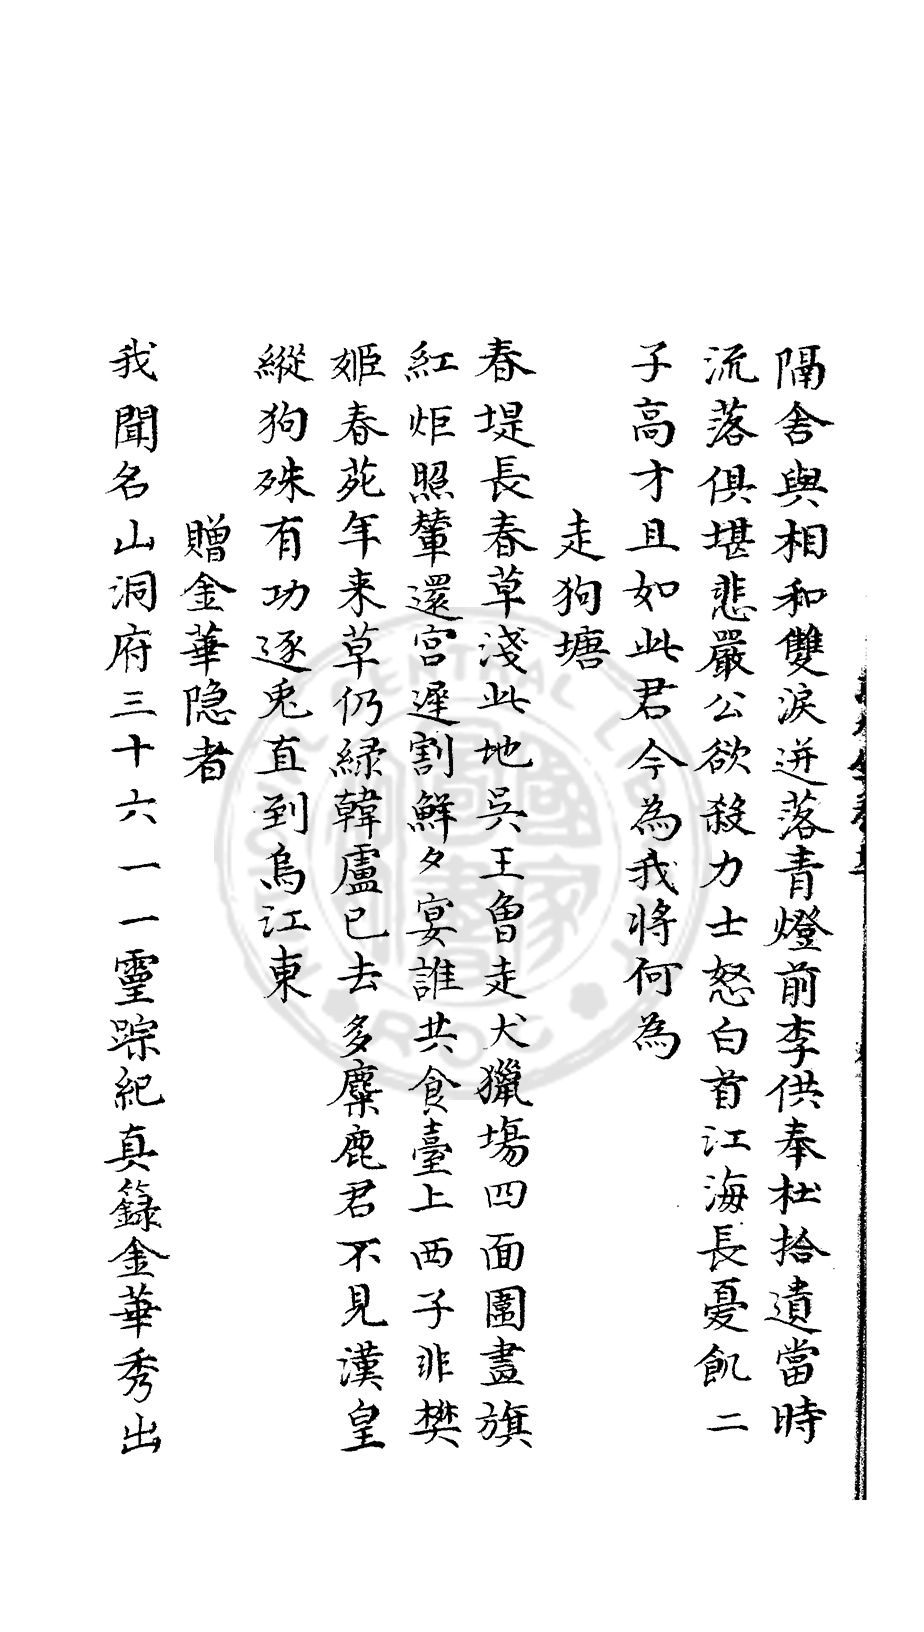 隔舍與相和雙淚迸落青燈前李供奉杜拾遺當時
流落俱堪悲嚴公欲殺力士怒白首江海長憂飢二
子高才且如此君今為我將何為
走狗塘
春堤長春草淺此地吳王魯走犬獵場四面圍畫旗
紅炬照輦還宮遲割鮮夕宴誰共食臺上西子非樊
姬春苑年来草仍緑韓盧已去多麋鹿君不見漢皇
縱狗殊有功逐兎直到烏江東
贈金華隐者
我聞名山洞府三十六一一靈踪紀真籙金華秀出